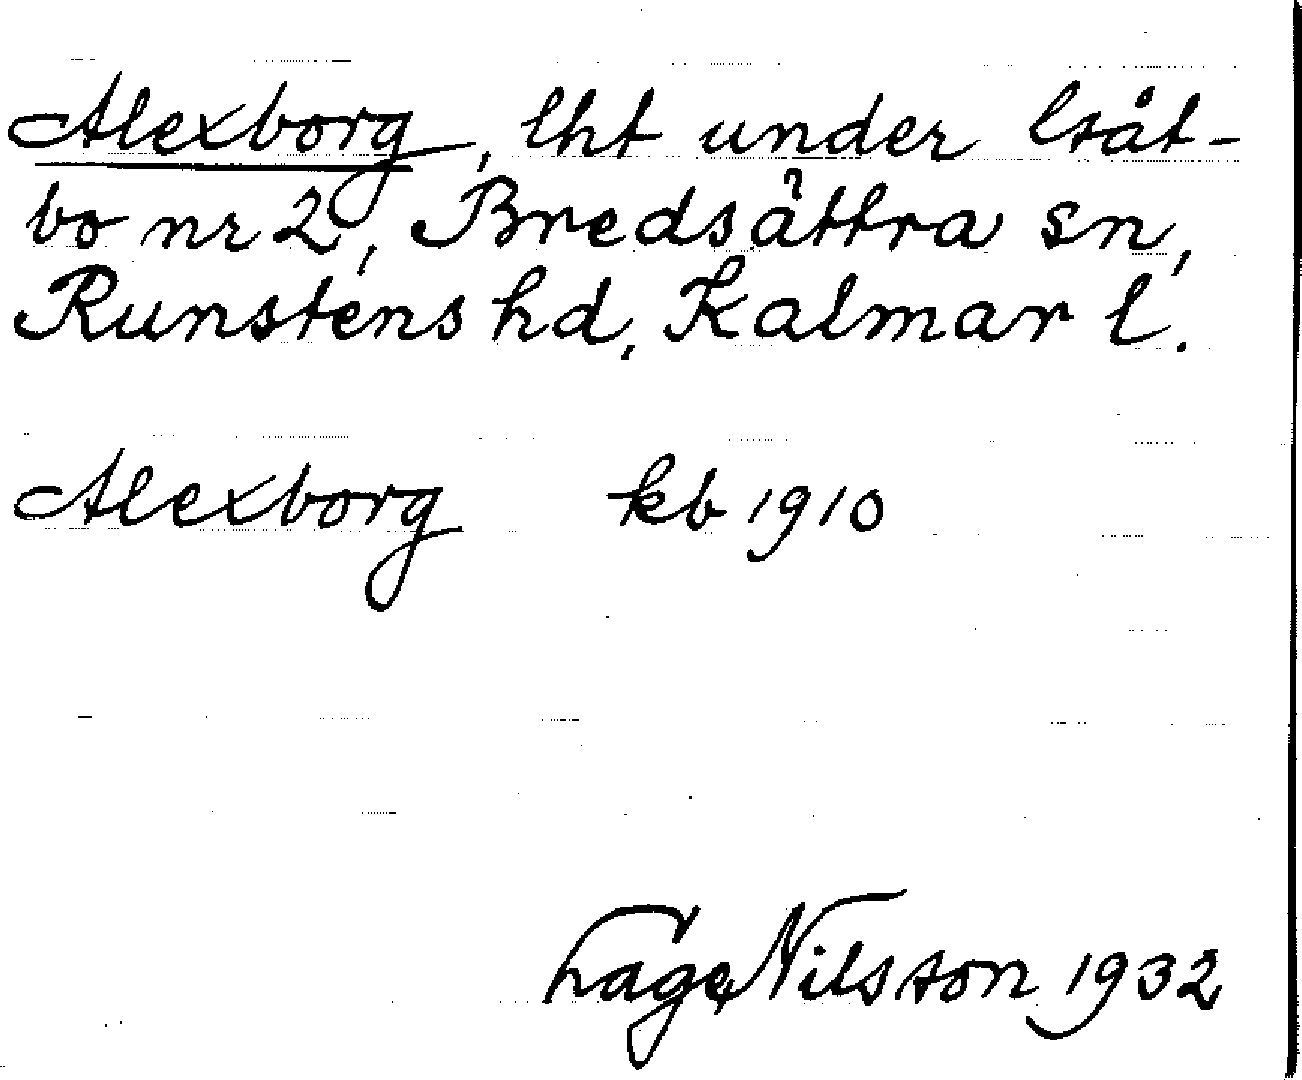 Alexborg, lht under Ståt-
bo nr 2, Bredsättra sn,
Runstens hd, Kalmar l.
Alexborg kb 1910
Tage Nilsson 1932